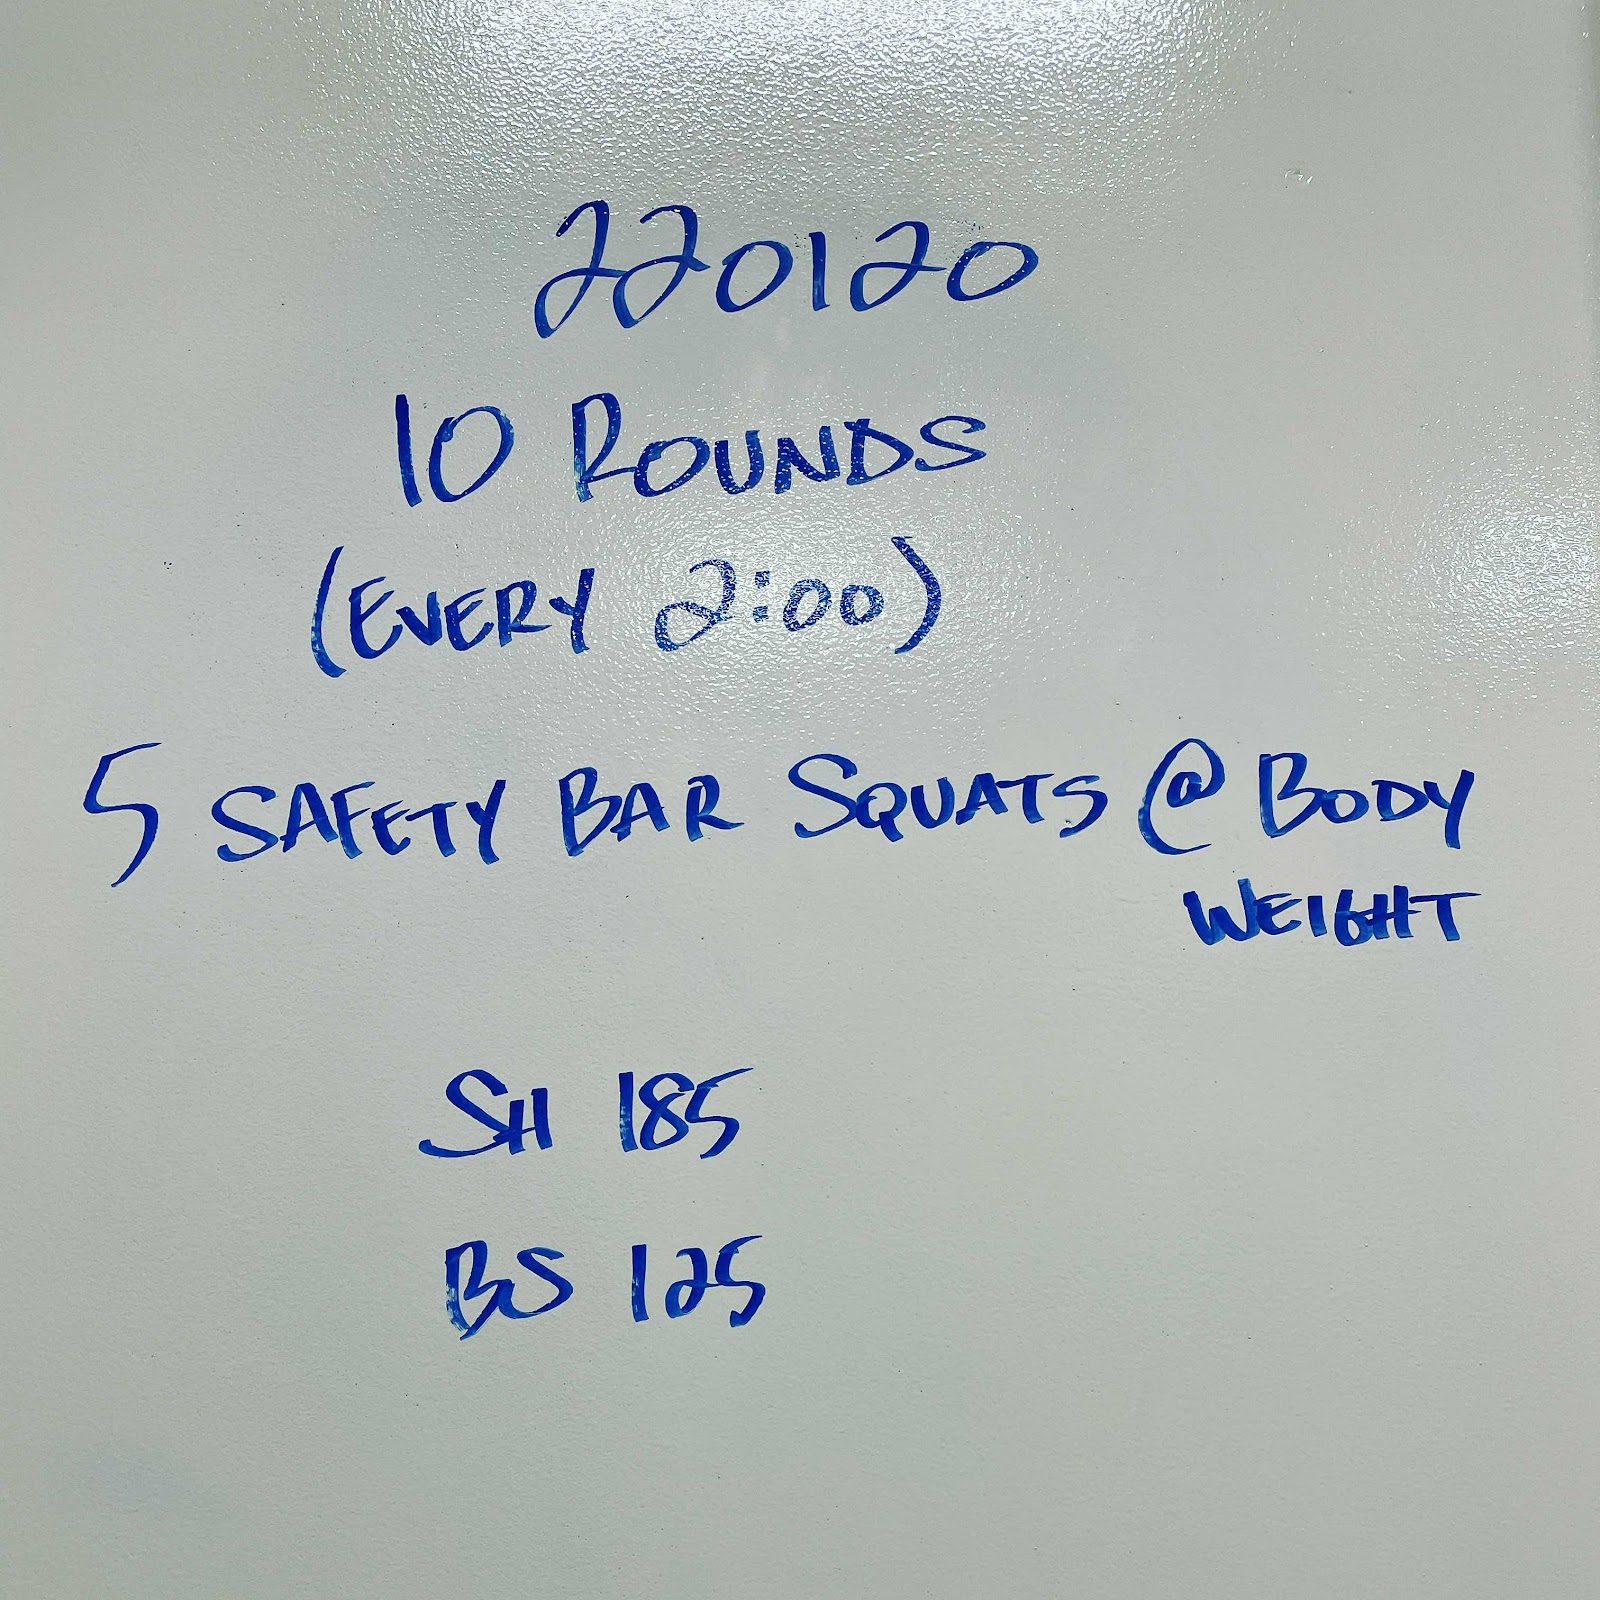 220120
10 ROUNDS
(EVERY 2:00)
5 SAFETY BAR SQUATS @ BODY
WEIGHT
SH 185
BS 125